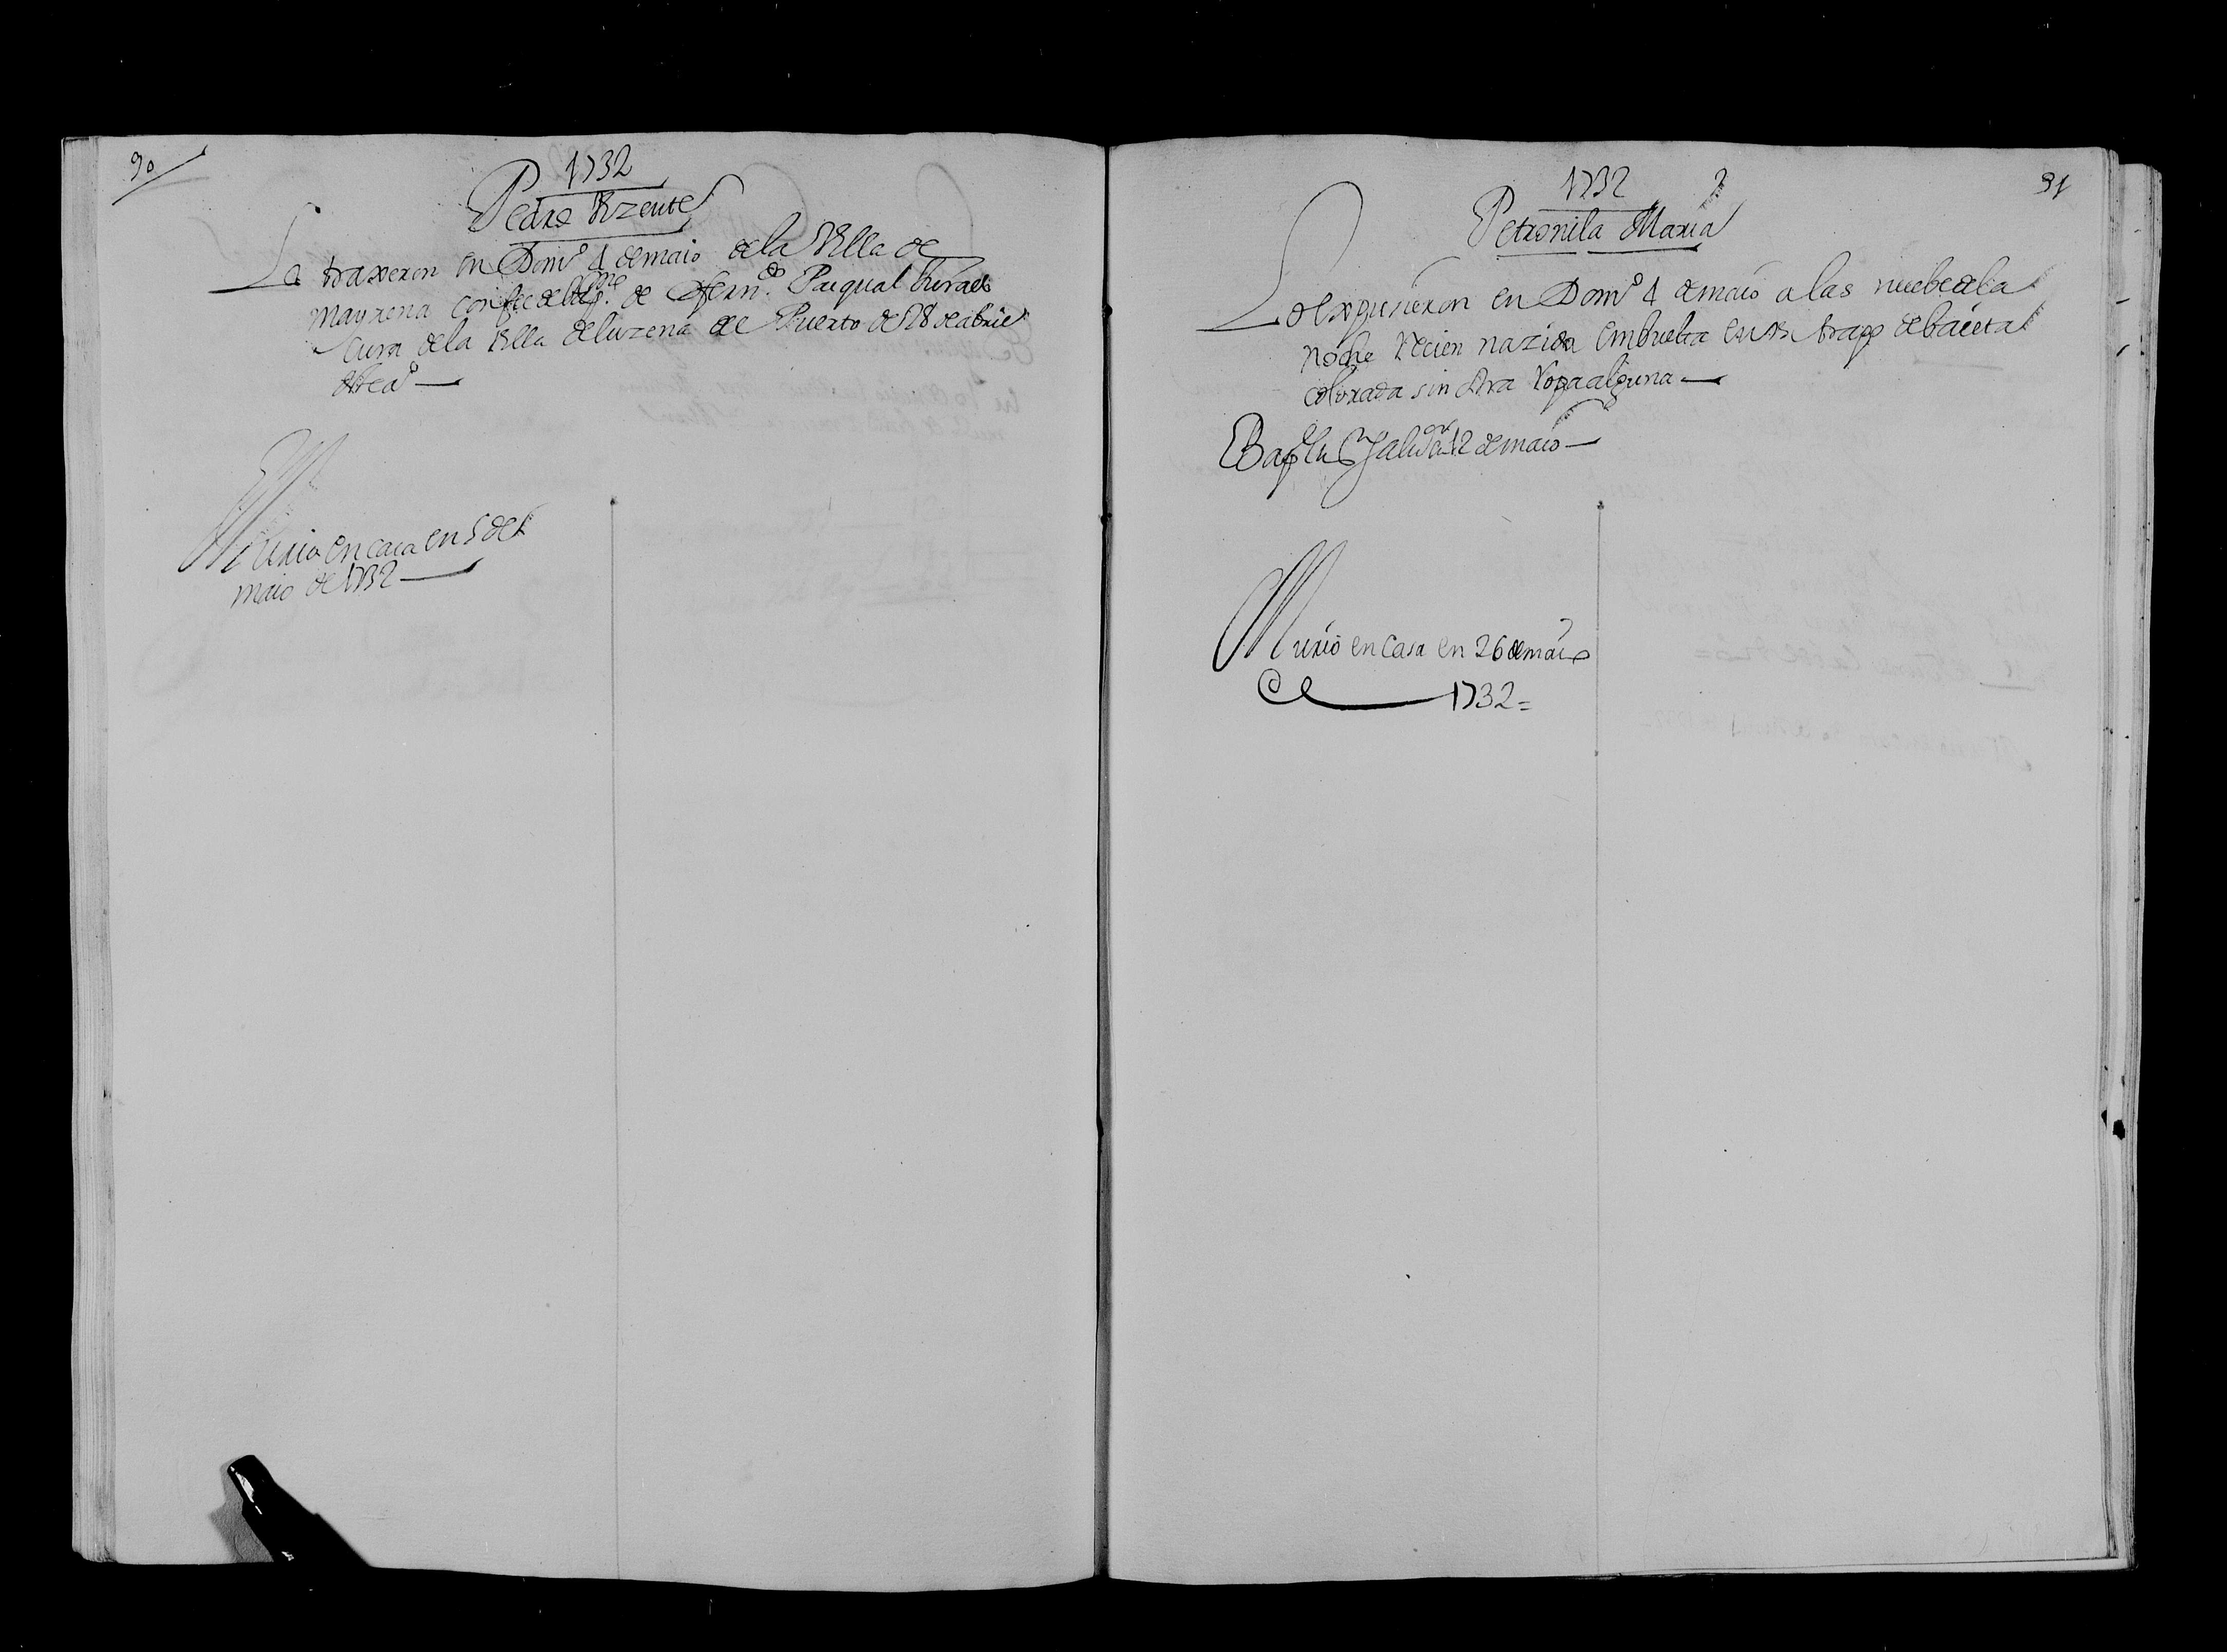 90
1732
Pedro Vizente
Lo traxeron en Domº 4 de maio de la Villa de
Mayrena con fee de Bapmo. de D. Ferndo. Pasqual
Cura de la Villa de Luzena del Puerto de 28 de abril
Murio en casa en 5 de
maio de 1732
91
1732
Petronila Maria
La expusieron en Domº 4 de maio a las nuebe de la
noche recien nazida embuelta en un trapo de baieta
colorada sin otra ropa alguna
Bapº en Salvor en 12 de maio
Murio en casa en 26 de maio
de 1732=